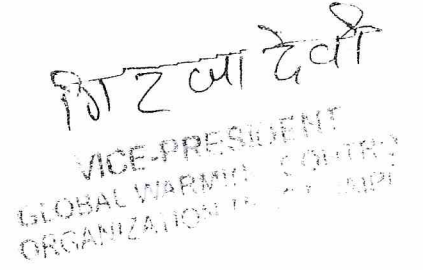 गिरजा देवी
VICE-PRESIDENT
GLOBAL WARMING CONTRO
ORGANIZATION